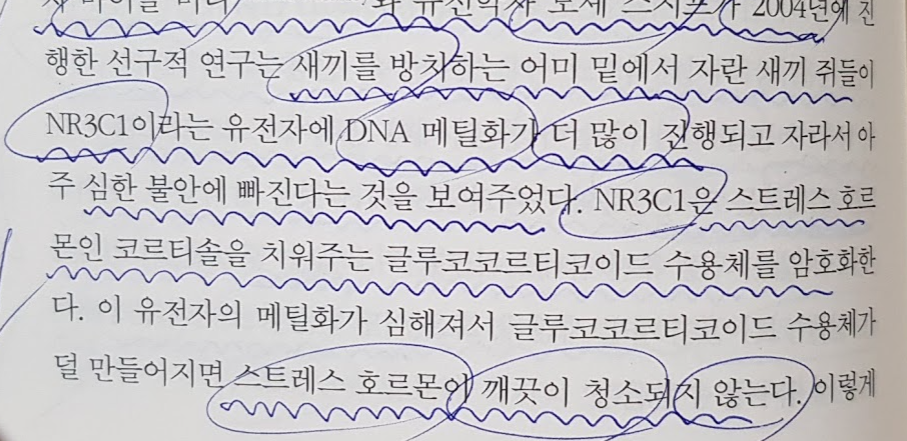 와 유전학자 모셰 스지프가 2004년에 진
행한 선구적 연구는 새끼를 방치하는 어미 밑에서 자란 새끼 쥐들이
NR3C1이라는 유전자에 DNA 메틸화가 더 많이 진행되고 자라서 아
주 심한 불안에 빠진다는 것을 보여주었다. NR3C1은 스트레스 호르
몬인 코르티솔을 치워주는 글루코코르티코이드 수용체를 암호화한
다. 이 유전자의 메틸화가 심해져서 글루코코르티코이드 수용체가
덜 만들어지면 스트레스 호르몬이 깨끗이 청소되지 않는다. 이렇게